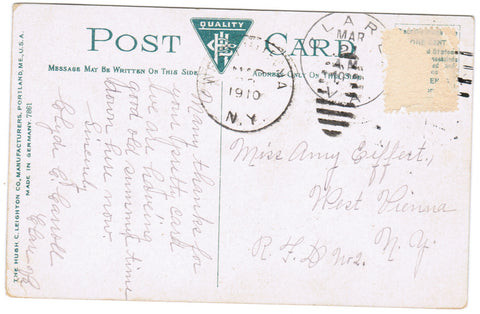 POST CARD
QUALITY
MESSAGE MAY BE WRITTEN ON THIS SIDE
ADDRESS ONLY ON THIS SIDE
ONE CENT
MAR
1910
N.Y.
Many thanks for
your postcard
We are having
good old summer time
down here now.
Sincerely
Clyde
Miss Amy Eiffert,
West Vienna
N. Y.
R. F. D No 2.
THE HUGH C. LEIGHTON CO., MANUFACTURERS, PORTLAND, ME., U.S.A.
MADE IN GERMANY 7861